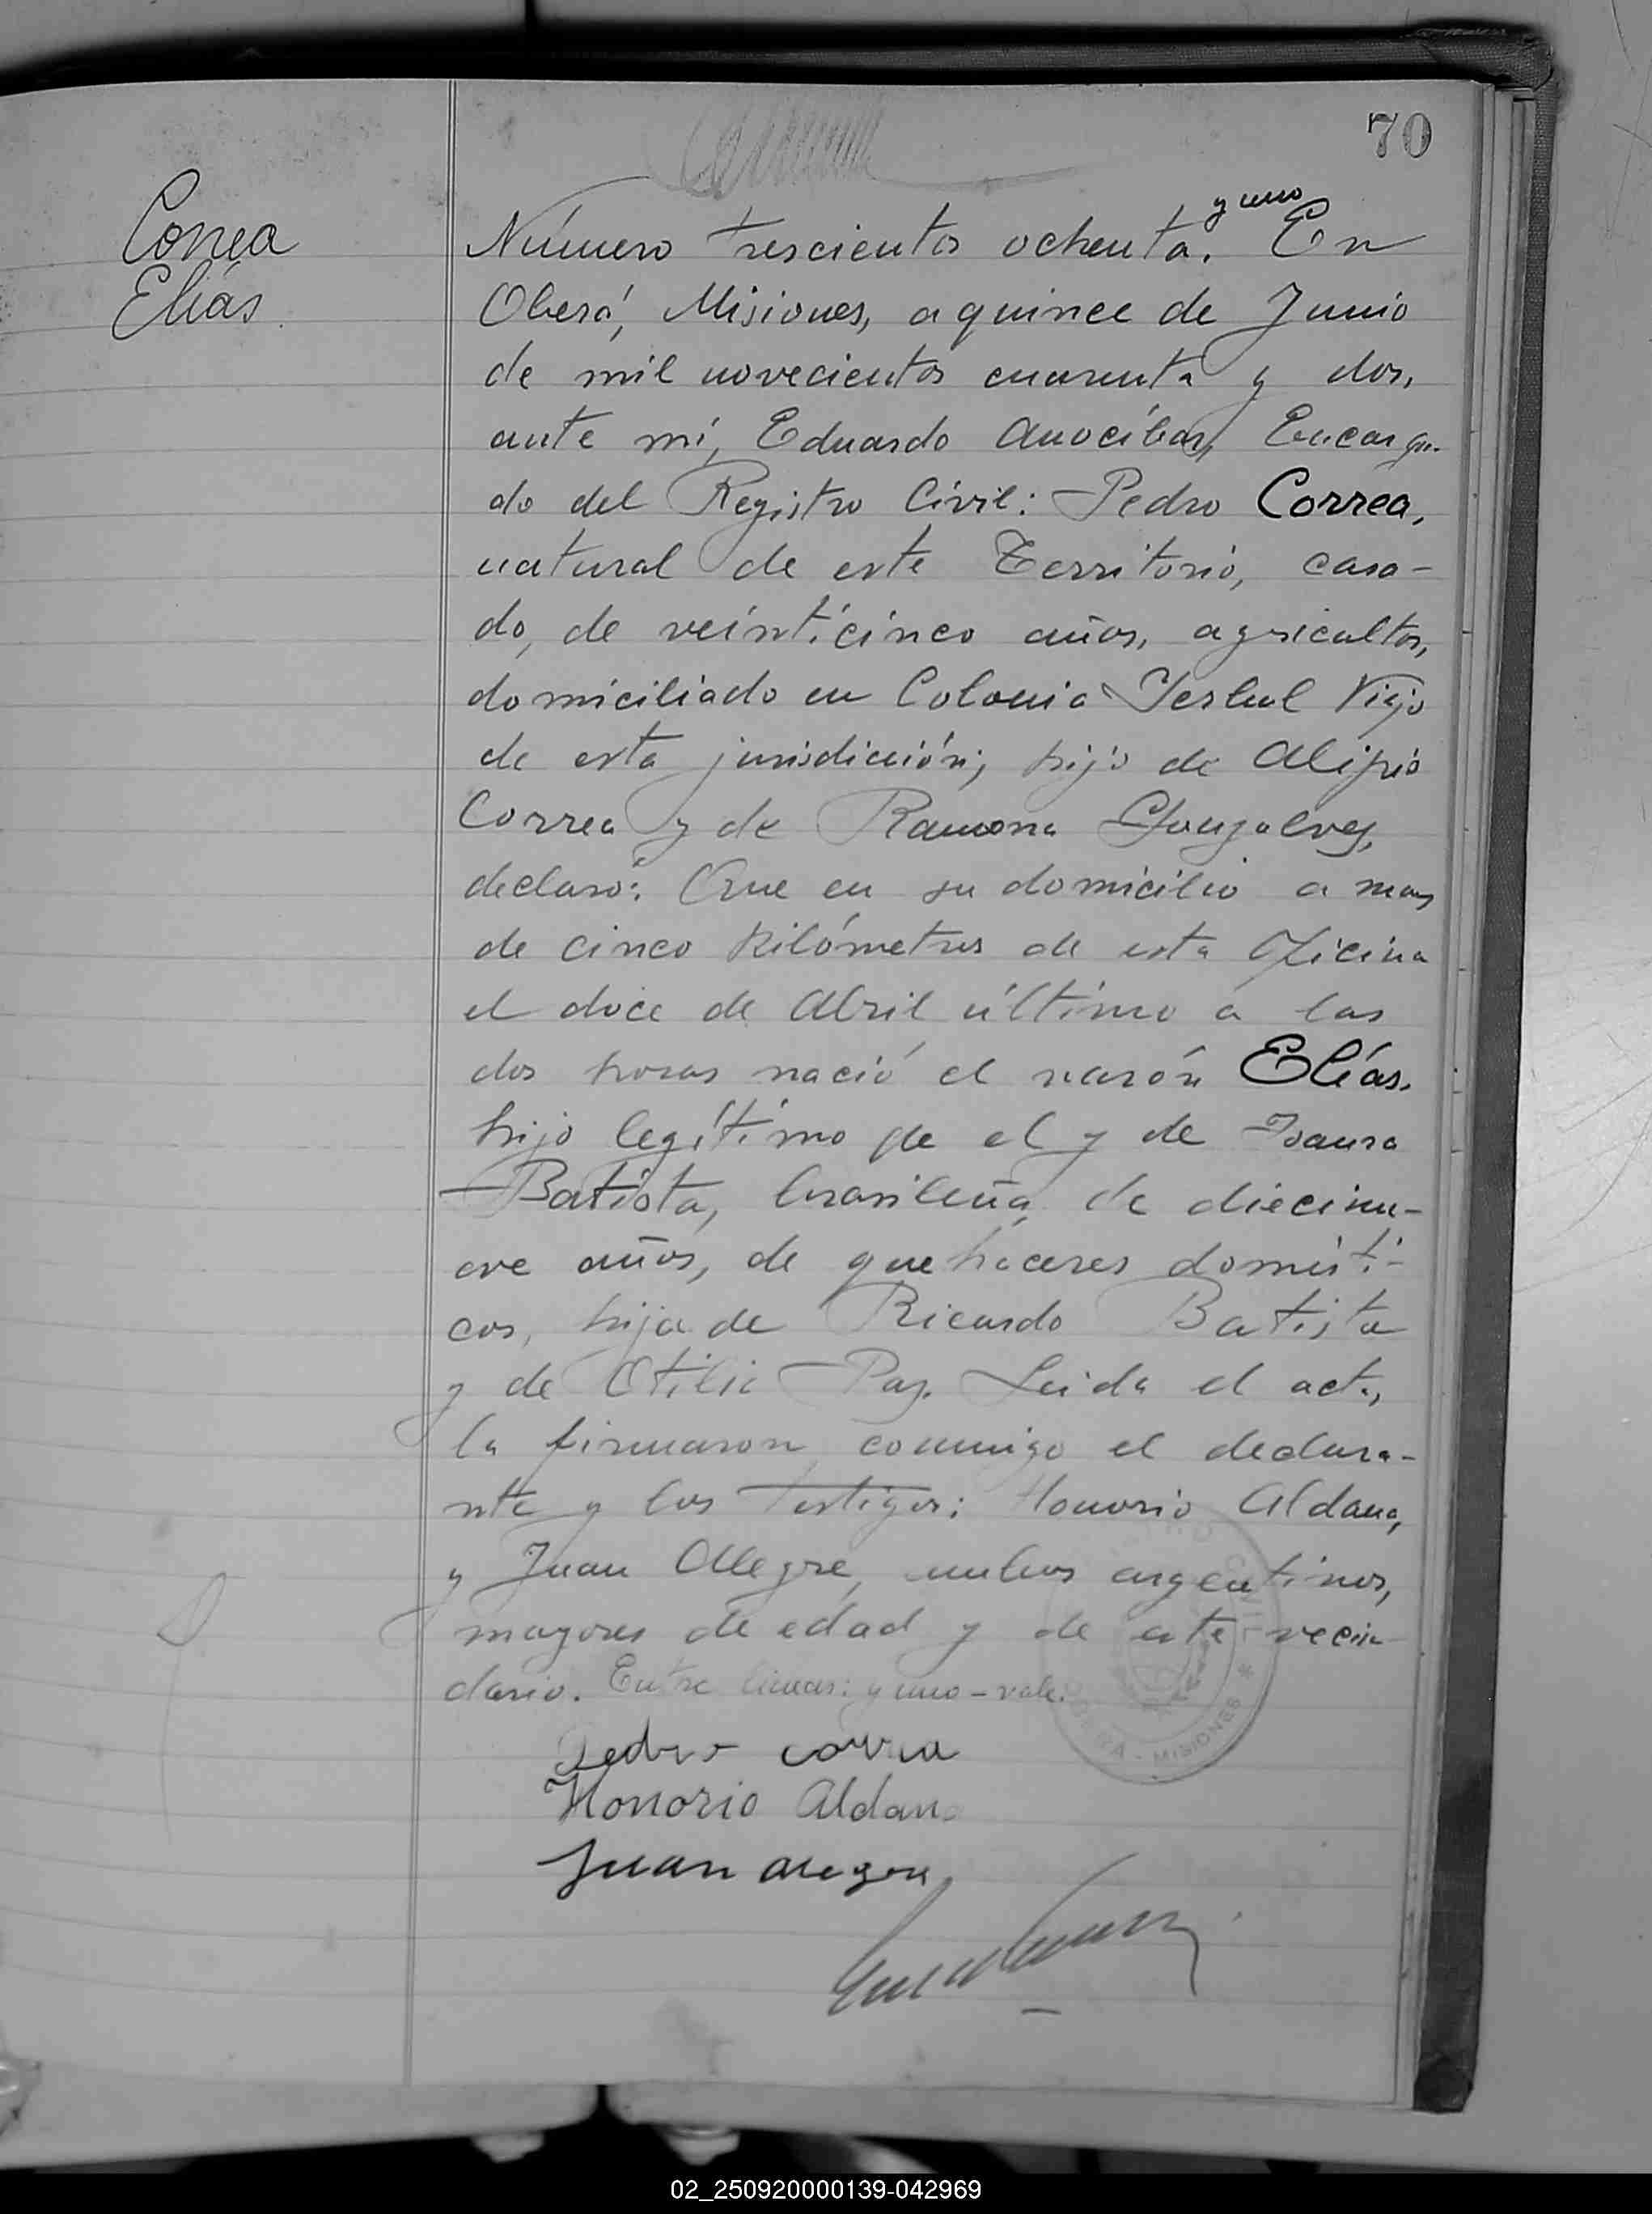 70
Correa
Elías
y uno
Número trescientos ochenta. En
Oberá, Misiones, a quince de Junio
de mil novecientos cuarenta y dos,
ante mí, Eduardo Anocíbar, Encarga-
do del Registro Civil: Pedro Correa,
natural de este Territorio, casa-
do, de veinticinco años, agricultor,
domiciliado en Colonia Yerbal Viejo
de esta jurisdicción; hijo de Alipio
Correa y de Ramona Gonzalves,
declaró: Que en su domicilio a mas
de cinco kilómetros de esta Oficina
el doce de Abril último a las
dos horas nació el varón Elías.
hijo legítimo de el y de Isaura
Batista, brasileña, de diecinu-
eve años, de quehaceres domésti-
cos, hija de Ricardo Batista
y de Otilia Paz. Leida el acta,
la firmaron conmigo el declara-
nte y los testigos: Honorio Aldana,
y Juan Alegre, ambos argentinos,
mayores de edad y de este vecin
dario. Entre lineas: y uno - vale.
Pedro correa
Honorio Aldana
Juan alegre
MISIONES
02_250920000139-042969